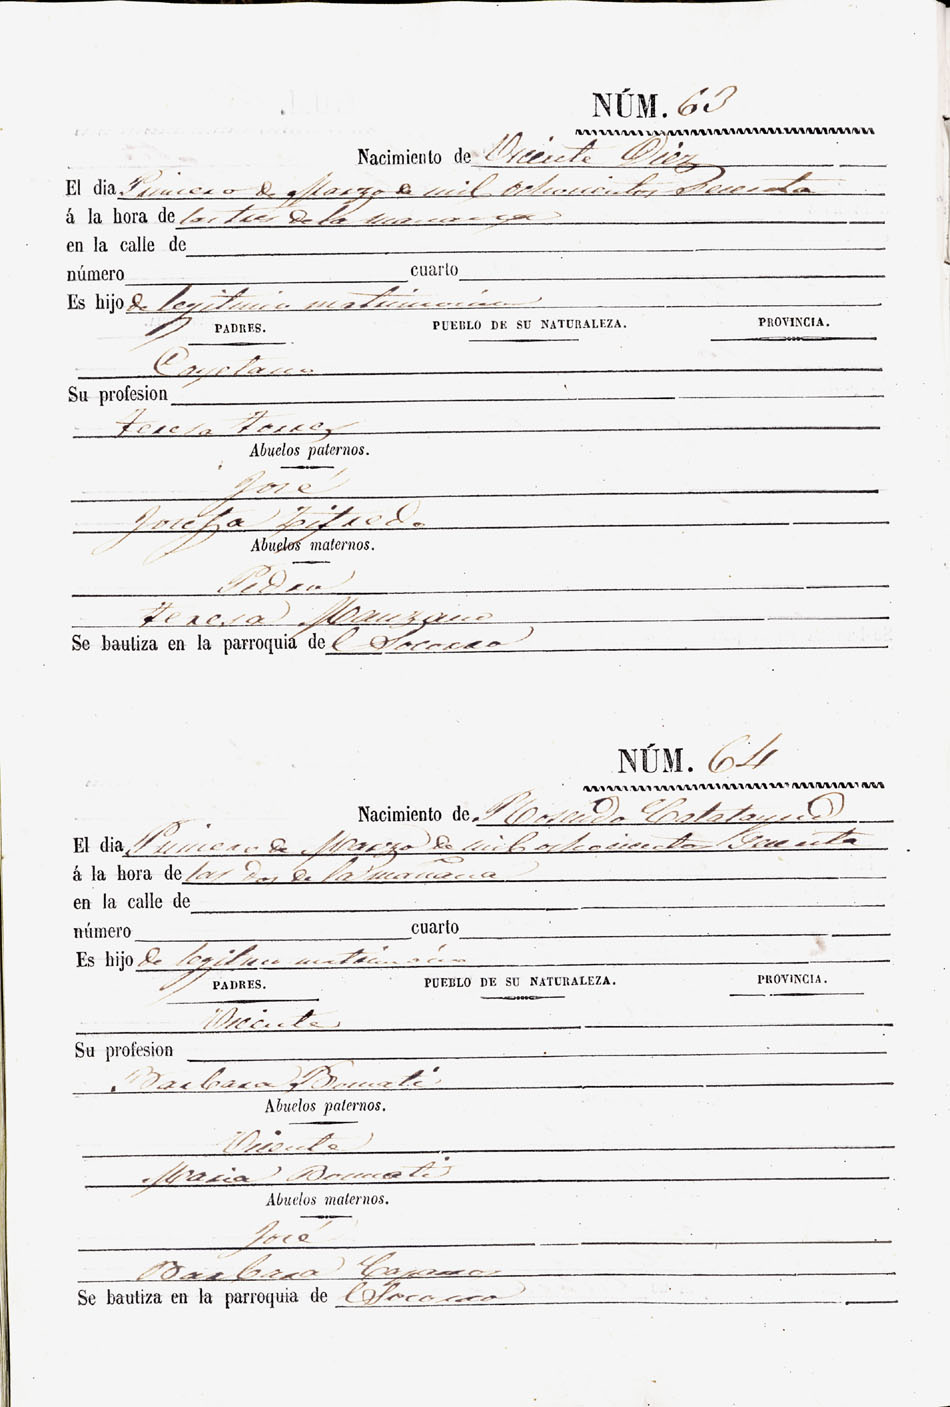 NÚM. 63
Nacimiento de Vicente Diez
El dia Primero de Marzo de mil ochocientos Sesenta
á la hora de las tres de la mañana
en la calle de
número cuarto
Es hijo de legitimo matrimonio
PADRES. PUEBLO DE SU NATURALEZA. PROVINCIA.
Cayetano
Su profesion
Teresa Torrez
Abuelos paternos.
José
Josefa
Abuelos maternos.
Pedro
Teresa Manzano
Se bautiza en la parroquia de l Socorro
NÚM. 64
Nacimiento de Rosendo Calatayud
El dia Primero de Marzo de mil ochocientos Sesenta
á la hora de las dos de la mañana
en la calle de
número cuarto
Es hijo de legitimo matrimonio
PADRES. PUEBLO DE SU NATURALEZA. PROVINCIA.
Vicente
Su profesion
Barbara Bomati
Abuelos paternos.
Vicente
Maria Bomati
Abuelos maternos.
José
Barbara
Se bautiza en la parroquia de l Socorro